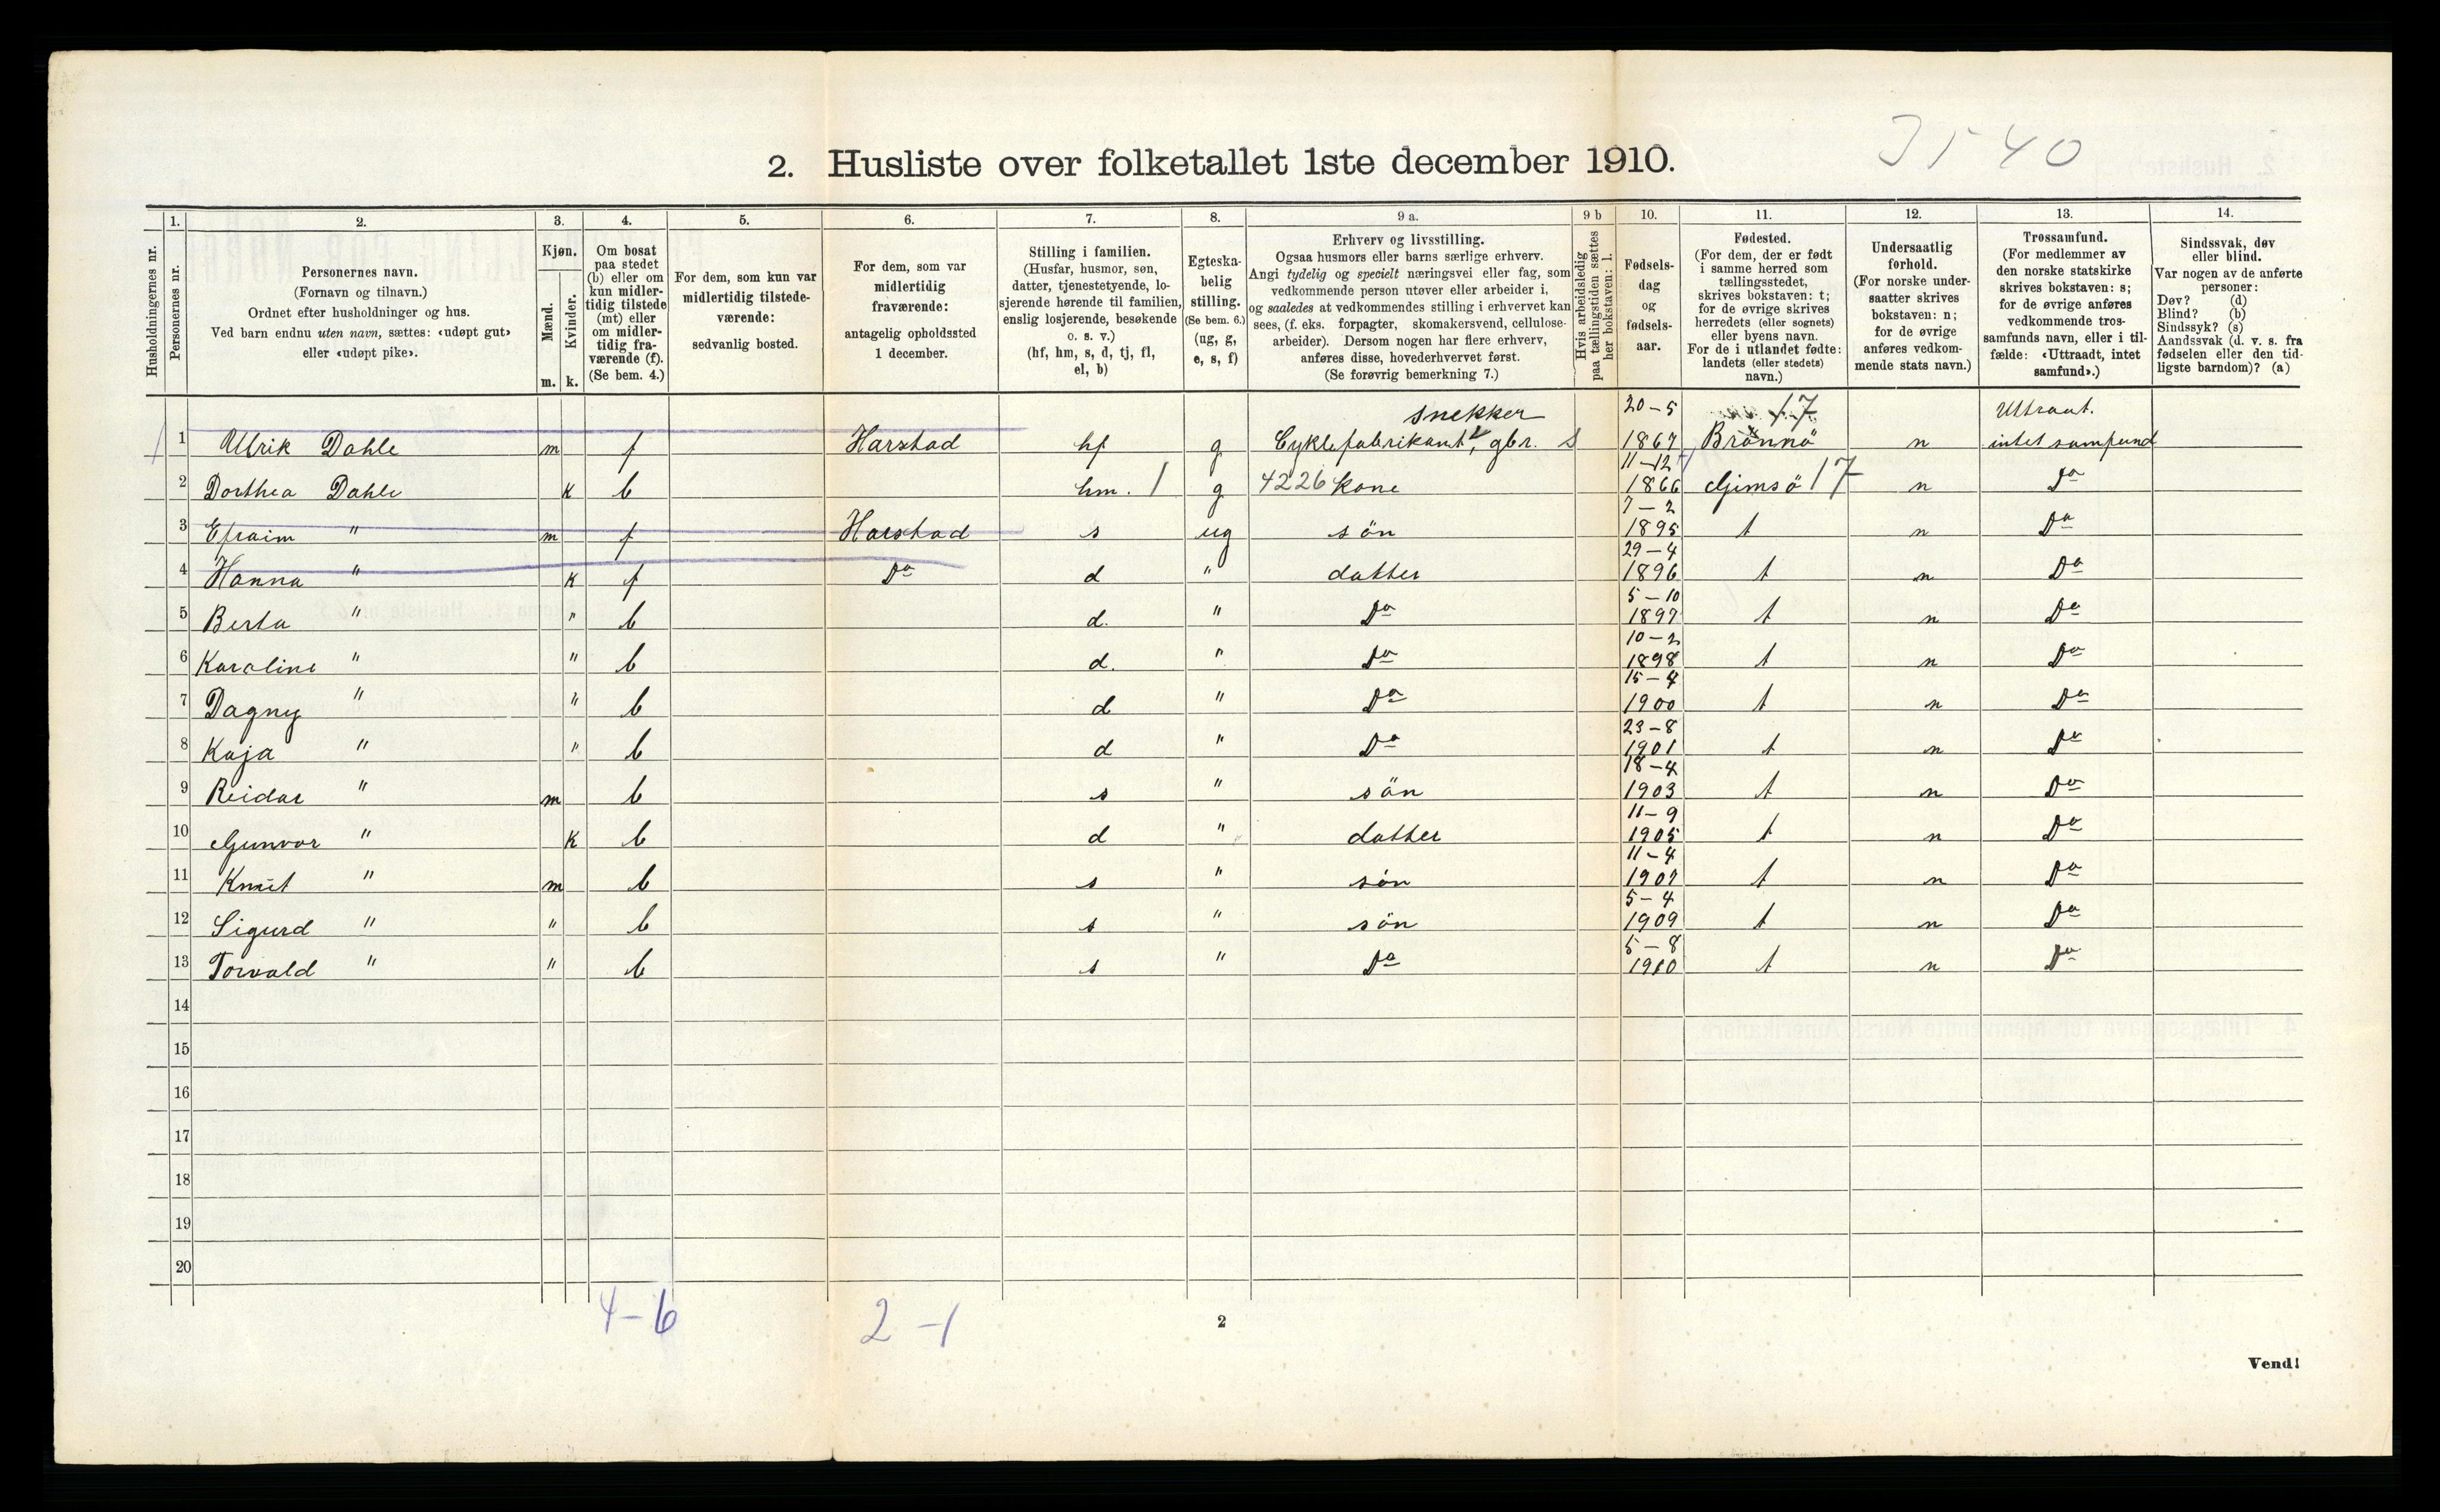 3540
2. Husliste over folketallet 1ste december 1910.
1. 2. 3. 4. 5. 6. 7. 8. 9 a. 9 b 10. 11. 12. 13. 14.
Husholdningernes nr.
Personernes nr.
Personernes navn.
(Fornavn og tilnavn.)
Ordnet efter husholdninger og hus.
Ved barn endnu uten navn, sættes: «udøpt gut»
eller «udøpt pike».
Kjøn.
Mænd.
Kvinder.
m. k.
Om bosat
paa stedet
(b) eller om
kun midler-
tidig tilstede
(mt) eller
om midler-
tidig fra-
værende (f).
(Se bem. 4.)
For dem, som kun var
midlertidig tilstede-
værende:
sedvanlig bosted.
For dem, som var
midlertidig
fraværende:
antagelig opholdssted
1 december.
Stilling i familien.
(Husfar, husmor, søn,
datter, tjenestetyende, lo-
sjerende hørende til familien,
enslig losjerende, besøkende
o. s. v.)
(hf, hm, s, d, tj, fl,
el, b)
Egteska-
belig
stilling.
(Se bem. 6.)
(ug, g,
e, s, f)
Erhverv og livsstilling.
Ogsaa husmors eller barns særlige erhverv.
Angi tydelig og specielt næringsvei eller fag, som
vedkommende person utøver eller arbeider i,
og saaledes at vedkommendes stilling i erhvervet kan
sees, (f. eks. forpagter, skomakersvend, cellulose-
arbeider). Dersom nogen har flere erhverv,
anføres disse, hovederhvervet først.
(Se forøvrig bemerkning 7.)
Hvis arbeidsledig
paa tællingstiden sættes
her bokstaven: l.
Fødsels-
dag
og
fødsels-
aar.
Fødested.
(For dem, der er født
i samme herred som
tællingsstedet,
skrives bokstaven: t;
for de øvrige skrives
herredets (eller sognets)
eller byens navn.
For de i utlandet fødte:
landets (eller stedets)
navn.)
Undersaatlig
forhold.
(For norske under-
saatter skrives
bokstaven: n;
for de øvrige
anføres vedkom-
mende stats navn.)
Trossamfund.
(For medlemmer av
den norske statskirke
skrives bokstaven: s;
for de øvrige anføres
vedkommende tros-
samfunds navn, eller i til-
fælde: «Uttraadt, intet
samfund».)
Sindssvak, døv
eller blind.
Var nogen av de anførte
personer:
Døv? (d)
Blind? (b)
Sindssyk? (s)
Aandssvak (d. v. s. fra
fødselen eller den tid-
ligste barndom)? (a)
snekker 20-5 17 Uttraat.
1 Ulrik Dahle m f Harstad hf g Cyklefabrikant, gbr. S 1867 Brönnö n intet samfund
11-12
2 Dorthea Dahle k b hm. 1 g 4226 kone 1866 Gimsö 17 n Do
7-2
3 Efraim " m f Harstad s ug sön 1895 t n Do
29-4
4 Hanna " k f Do d " datter 1896 t n Do
5-10
5 Berta " " b d. " Do 1897 t n Do
10-2
6 Karoline " " b d. " Do 1898 t n Do
15-4
7 Dagny " " b d " Do 1900 t n Do
23-8
8 Kaja " " b d " Do 1901 t n Do
18-4
9 Reidar " m b s " sön 1903 t n Do
11-9
10 Gunvor " k b d " datter 1905 t n Do
11-4
11 Knut " m b s " sön 1907 t n Do
5-4
12 Sigurd " " b s " sön 1909 t n Do
5-8
13 Torvald " " b s " Do 1910 t n Do
14
15
16
17
18
19
20
4-6 2-1
2
Vend!